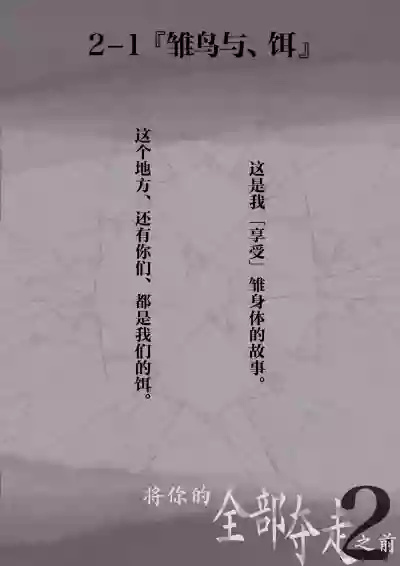 2-1『雏鸟与、饵』
这是我「享受」雏身体的故事。
这个地方、还有你们、都是我们的饵。
将你的全部夺走之前2